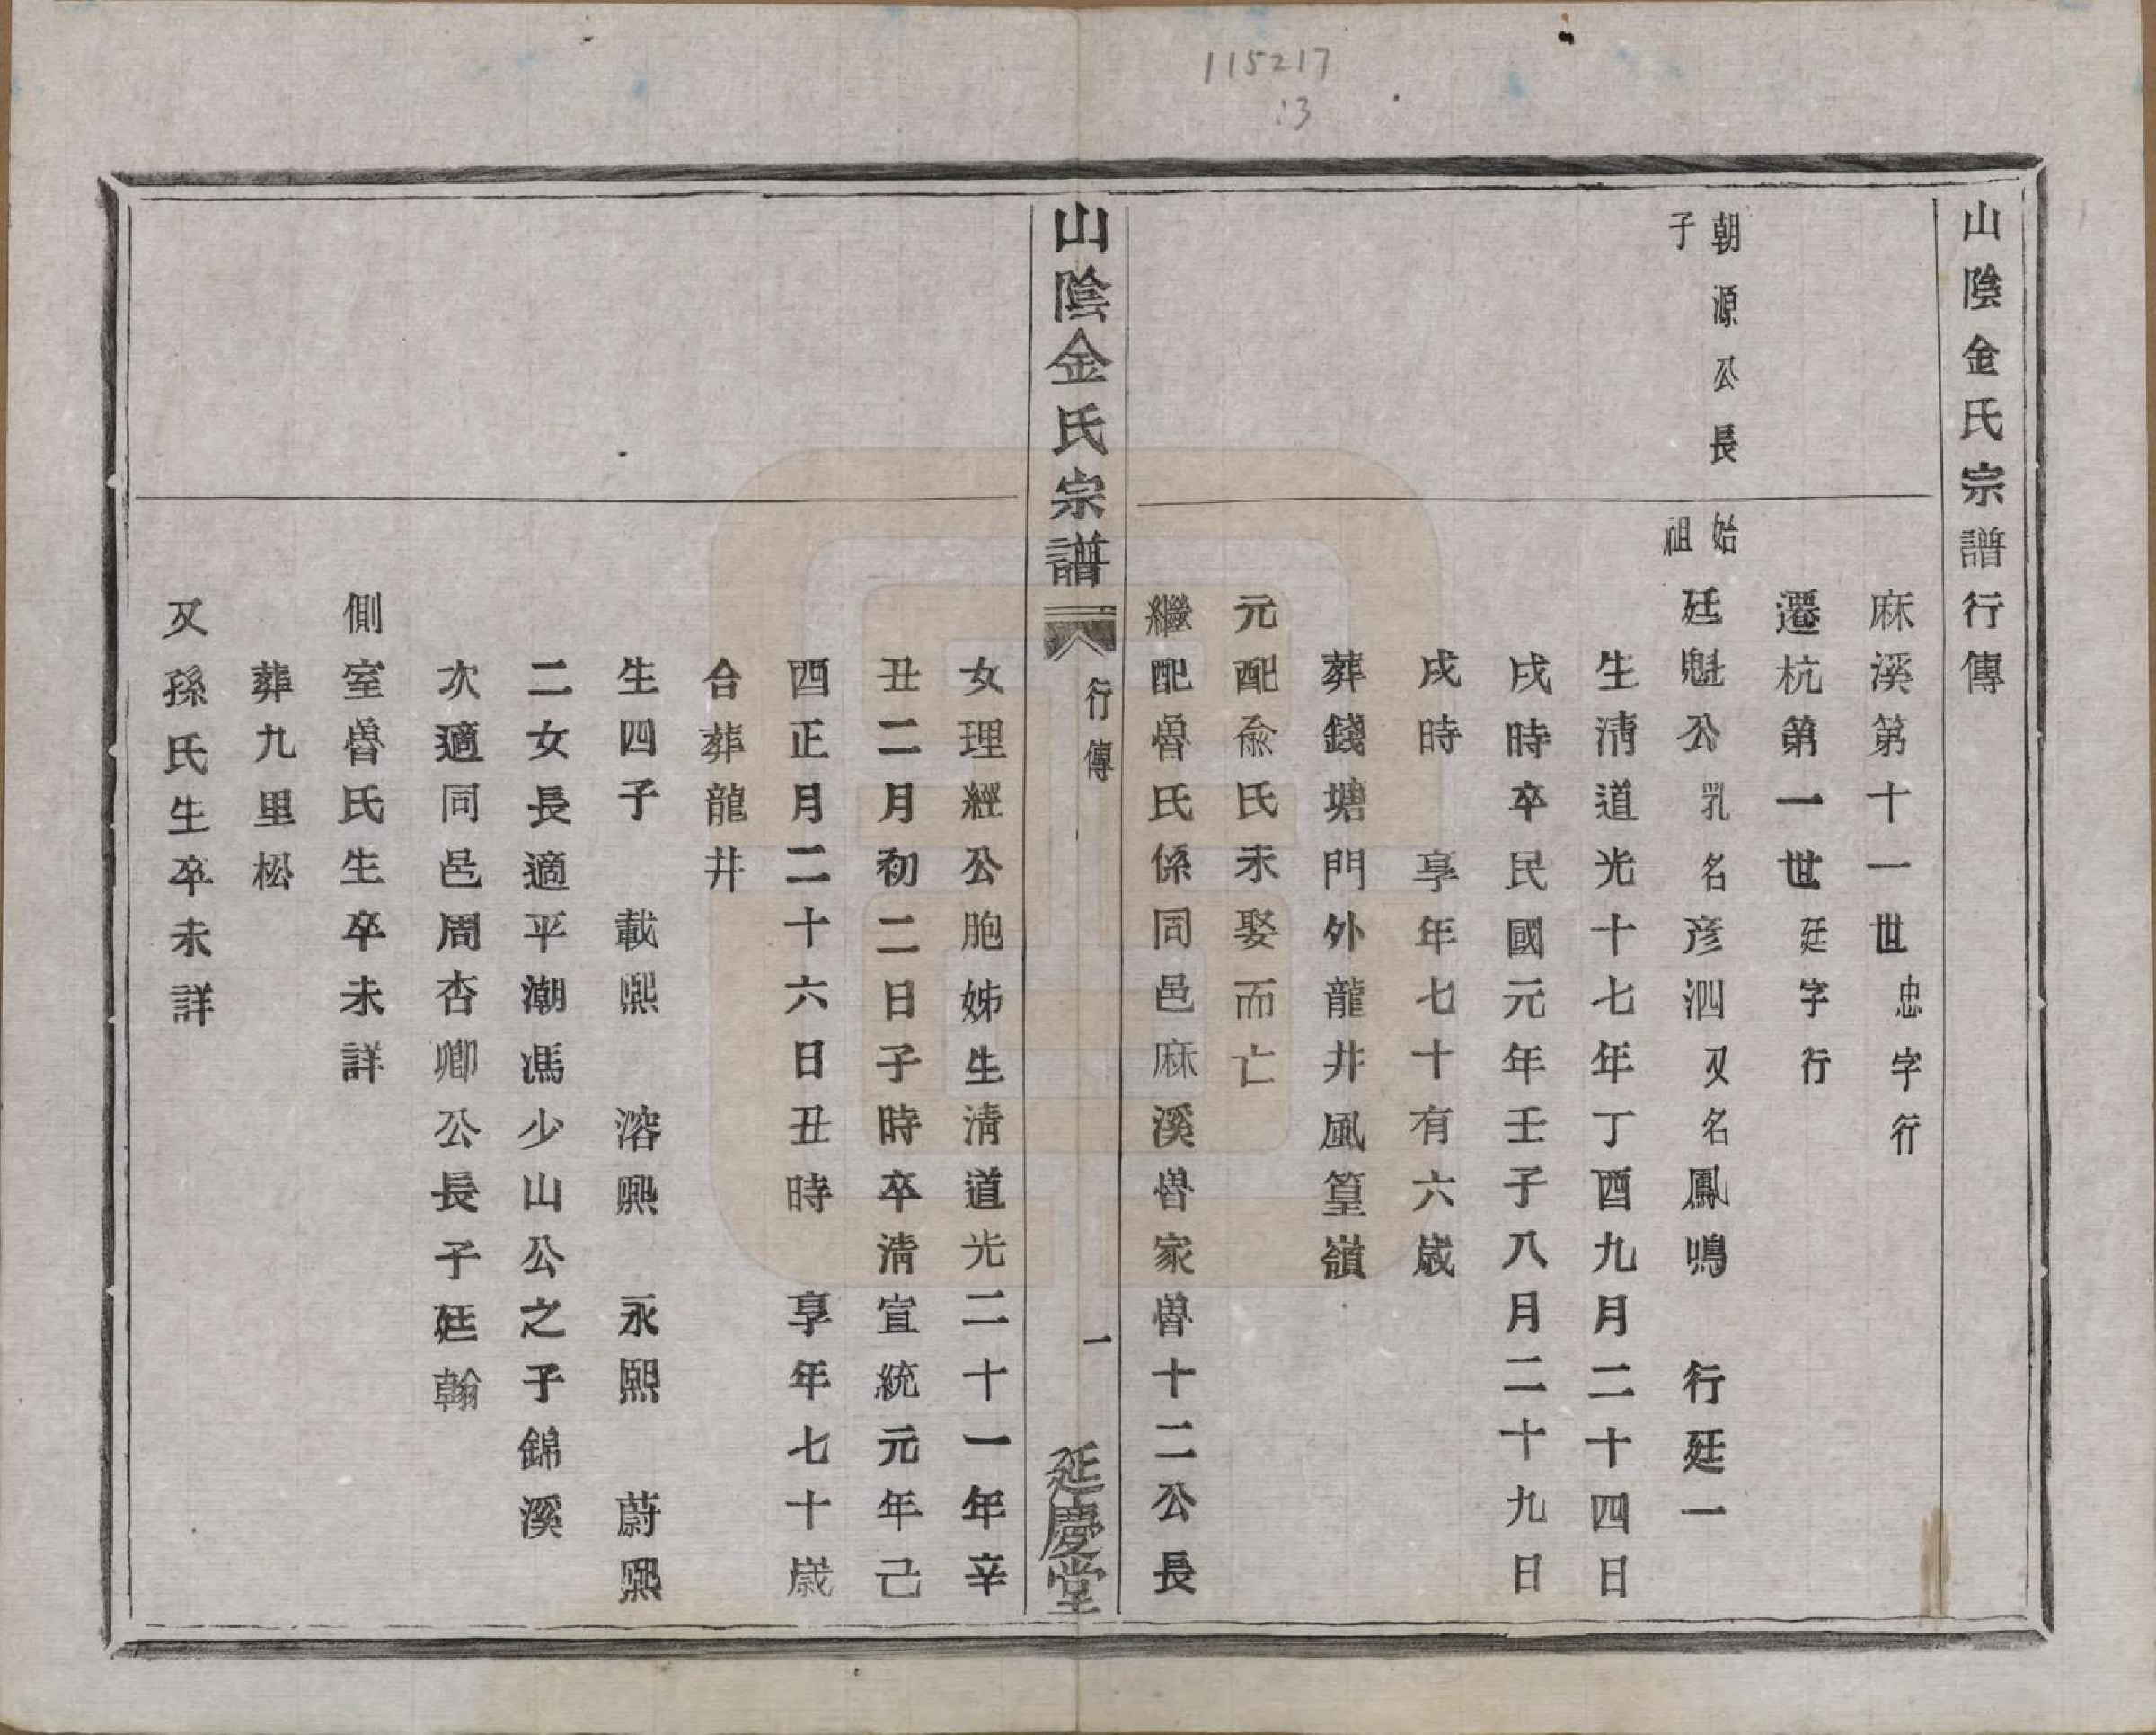 115217
:3
山陰金氏宗譜行傳
麻溪第十一世忠字行
遷杭第一世廷字行
朝源公長
子
始
祖
廷魁公乳名彦泗又名鳳鳴 行廷一
生清道光十七年丁酉九月二十四日
戌時卒民國元年壬子八月二十九日
戌時 享年七十有六歲
葬錢塘門外龍井風篁嶺
元配兪氏未娶而亡
繼配魯氏係同邑麻溪魯家魯十二公長
山陰金氏宗譜 行傳 一 延慶堂
女理經公胞姊生清道光二十一年辛
丑二月初二日子時卒清宣統元年己
酉正月二十六日丑時 享年七十歲
合葬龍井
生四子 載熙 溶熙 永熙 蔚熙
二女長適平潮馮少山公之子錦溪
次適同邑周杏卿公長子廷翰
側室魯氏生卒未詳
葬九里松
又孫氏生卒未詳